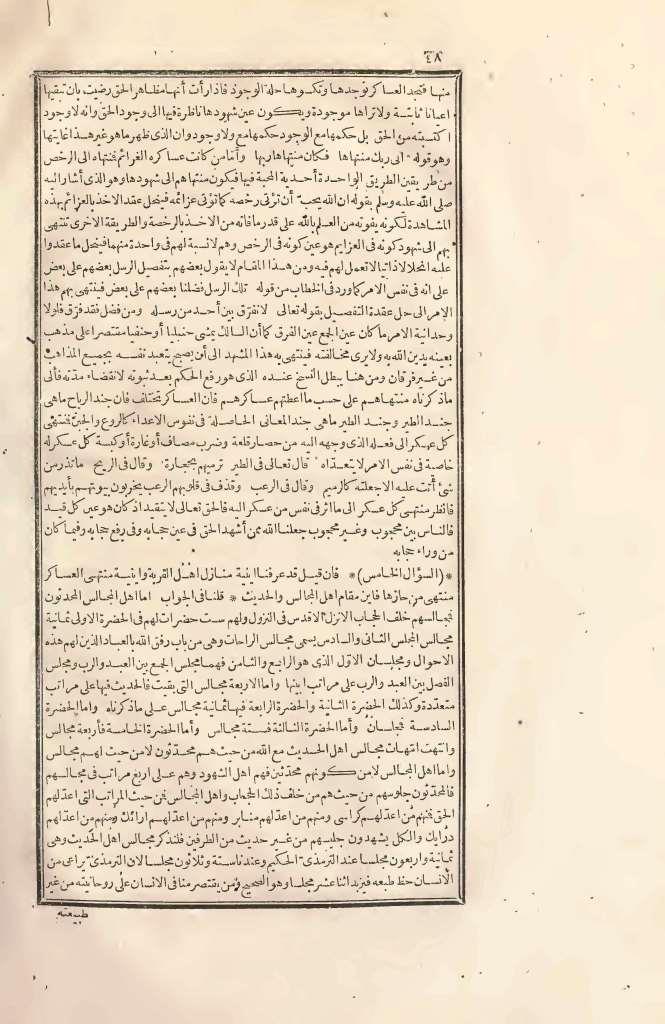 ٤٨
منها فتجد العساكر توجدها وتكسوها حلة الوجود فاذا رأت أنها مظاهر الحق رضيت بان تبقيها
اعيانا ثابتة ولا تراها موجودة ويكون عين شهودها ناظرة فيها الى وجود الحق وانه لا وجود
اكتسبته من الحق بل حكمها مع الوجود حكمها مع ولا وجود وان الذى ظهر ما هو غير هذا غايتها
وهو قوله الى ربك منتهاها فكان منتهاها ربها وأما من كانت عساكره الغرائم فمنتهاه الى الرخص
من طريقين الطريق الواحدة أحدية المحبة فيها فيكون منتهاهم الى شهودها وهو الذى أشار اليه
صلى الله عليه وسلم بقوله ان الله يحب أن تؤتى رخصه كما تؤتى عزائمه فينحل عقد الاخذ بالعزائم بهذه
المشاهدة لكونه يفوته من العلم بالله على قدر ما فاته من الاخذ بالرخصة والطريقة الاخرى تنتهى
بهم الى شهود كونه فى العزايم هو عين كونه فى الرخص وهم لا نسبة لهم فى واحدة منهما فينحل ما عقدوا
عليه انحلالا ذاتيا لا تعمل لهم فيه ومن هذا المقام لا يقول بعضهم بتفضيل الرسل بعضهم على بعض
على انه فى نفس الامر كما ورد فى الخطاب من قوله تلك الرسل فضلنا بعضهم على بعض فينتهى بهم هذا
الامر الى حل عقدة التفضيل بقوله تعالى لا نفرق بين أحد من رسله ومن فضل فقد فرق فلولا
وحدانية الامر ما كان عين الجمع عين الفرق كما أن السالك يمشى حنبليا أو حنفيا مقتصرا على مذهب
بعينه يدين الله به ولا يرى مخالفته فينتهى به هذا المشهد الى أن يصبح يتعبد نفسه بجميع المذاهب
من غير فرقان ومن هنا يبطل النسخ عنده الذى هو رفع الحكم بعد ثبوته لا نقضاء مدته فالى
ما ذكرناه منتهاهم على حسب ما اعطتهم عساكرهم فان العساكر تختلف فان جند الرياح ما هى
جند الطير وجند الطير ما هى جند المعانى الحاصلة فى نفوس الاعداء كالروع والجبن فمنتهى
كل عسكر الى فعله الذى وجهه اليه من حصار قلعة وضرب مصاف أو غارة أو كبسة كل عسكر له
خاصية فى نفس الامر لا يتعداه قال تعالى فى الطير ترميهم بحجارة وقال فى الريح ما تذر من
شئ أتت عليه الا جعلته كالرميم وقال فى الرعب وقذف فى قلوبهم الرعب يخربون بيوتهم بأيديهم
فانظر منتهى كل عسكر الى ما اثر فى نفس من عسكر اليه فالحق تعالى لا يتقيد اذ كان هو عين كل قيد
فالناس بين محجوب وغير محجوب جعلنا الله ممن أشهد الحق فى عين حجابه وفى رفع حجابه وفيما كان
من وراء حجابه
*(السؤال الخامس)* فان قيل قد عرفنا اينية منازل اهل القربة واينية منتهى العساكر
منتهى من حازها فاين مقام اهل المجالس والحديث * قلنا فى الجواب اما اهل المجالس المحدثون
فمجالسهم خلف الحجاب الانزل الاقدس فى النزول ولهم ست حضرات لهم فى الحضرة الاولى ثمانية
مجالس المجلس الثانى والسادس يسمى مجالس الراحات وهى من باب رفق الله بالعباد الذين لهم هذه
الاحوال ومجلسان الاول الذى هو الرابع والثامن فهما مجلس الجمع بين العبد والرب ومجلس
الفصل بين العبد والرب على مراتب ابينها واما الاربعة مجالس التى بقيت فالحديث فيها على مراتب
متعددة وكذلك الحضرة الثانية والحضرة الرابعة فيها ثمانية مجالس على ما ذكرناه واما الحضرة
السادسة فمجلسان وأما الحضرة الثالثة فستة مجالس وأما الحضرة الخامسة فأربعة مجالس
وانتهت امهات مجالس اهل الحديث مع الله من حيث هم محدثون لا من حيث لهم مجالس
واما اهل المجالس لا من كونهم محدثين فهم اهل الشهود وهم على اربع مراتب فى مجالسهم
فالمحدثون جلوسهم من حيث هم من خلف ذلك الحجاب واهل المجالس فمن حيث المراتب التى اعد لهم
الحق فمنهم من اعد لهم كراسى ومنهم من اعد لهم منابر ومنهم من اعد لهم ارائك ومنهم من اعد لهم
درابك والكل يشهدون جليسهم من غير حديث من الطرفين فلنذكر مجالس اهل الحديث وهى
ثمانية واربعون مجلسا عند الترمذى الحكيم وعندنا ستة وثلاثون مجلسا لان الترمذى يراعى من
الانسان حظ طبعه فيزيد اثنا عشر مجلسا وهو الصحيح ومن يقتصر منا فى الانسان على روحانيته من غير
طبيعته